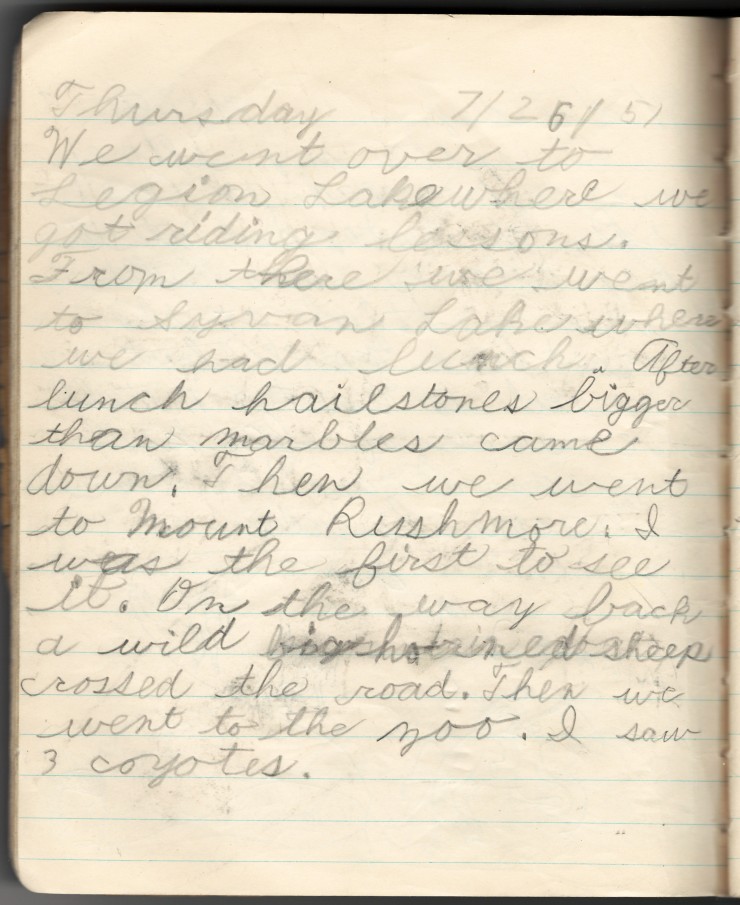 Thursday 7/26/51
We went over to
Legion Lake where we
got riding lessons.
From there we went
to Syvan Lake where
we had lunch. After
lunch hailstones bigger
than marbles came
down. Then we went
to Mount Rushmore. I
was the first to see
it. On the way back
a wild sheep
crossed the road. Then we
went to the zoo. I saw
3 coyotes.